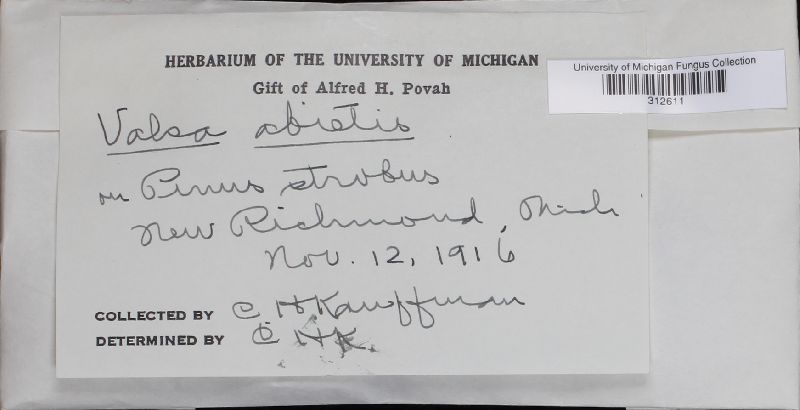 HERBARIUM OF THE UNIVERSITY OF MICHIGAN
Gift of Alfred H. Povah
University of Michigan Fungus Collection
312611
Valsa abietis
on Pinus strobus
New Richmond, Mich
Nov. 12, 1916
COLLECTED BY C H Kauffman
DETERMINED BY C H K.